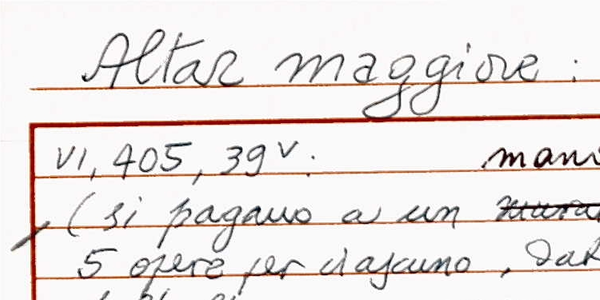 Altar maggiore :
VI, 405, 39v. mano
(si pagano a un
5 opere per ciascuno, dal